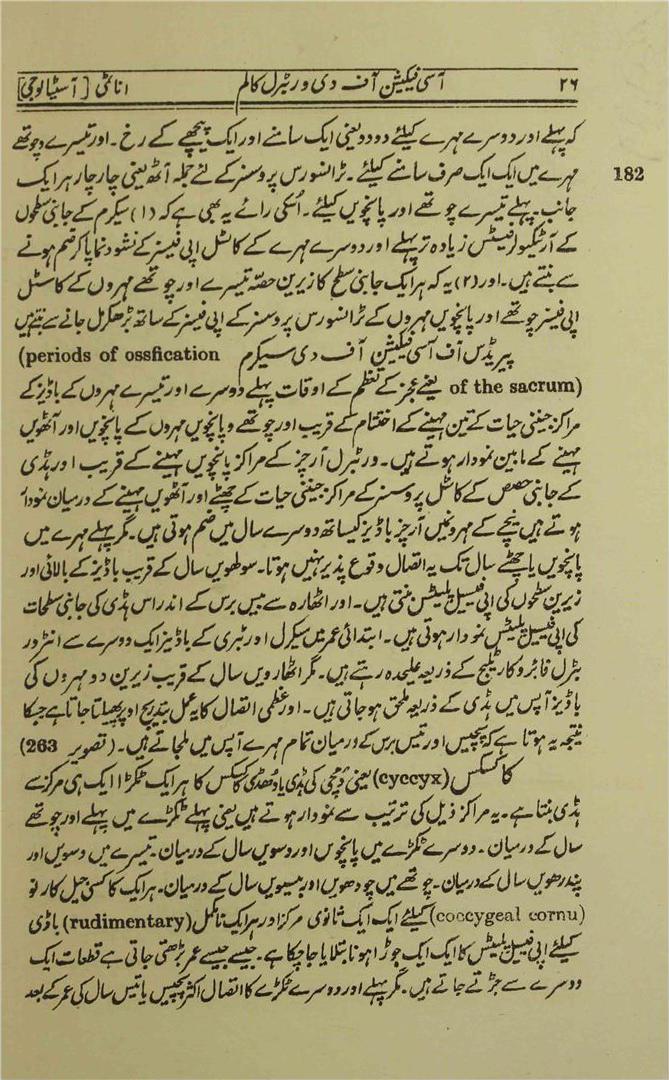 ۲۶ آسی فیکیشن آف دی ورٹبرل کالم اناٹمی [آسٹیالوجی]
کہ پہلے اور دوسرے مہرے کیلئے دو دو یعنی ایک سامنے اور ایک پیچھے کے رخ۔ اور تیسرے و چوتھے
مہرے میں ایک ایک صرف سامنے کیلئے۔ ٹرانسورس پروسسز کے لئے جملہ آٹھ یعنی چار چار ہر ایک
182
جانب پہلے تیسرے چوتھے اور پانچویں کیلئے۔ اُسکی رائے یہ بھی ہے کہ (۱) سیکرم کے جانبی سطحوں
کے آرٹکیولر فیسٹس زیادہ تر پہلے اور دوسرے مہرے کے کاسٹل اپی فیسز کے نشوونما پاکر ضم ہونے
سے بنتے ہیں۔ اور (۲) یہ کہ ہر ایک جانبی سطح کا زیرین حصّہ تیسرے اور چوتھے مہروں کے کاسٹل
اپی فیسز چوتھے اور پانچویں مہروں کے ٹرانسورس پروسسز کے اپی فیسز کے ساتھ بڑھکر مل جانے سے بنتے ہیں
پیریڈس آف آسی فیکیشن آف دی سیکرم (periods of ossfication
of the sacrum) یعنے عجز کے تعظم کے اوقات پہلے دوسرے اور تیسرے مہروں کے باڈیز کے
مراکز جنینی حیات کے تین مہینے کے اختتام کے قریب اور چوتھے و پانچویں مہروں کے پانچویں اور آٹھویں
مہینے کے مابین نمودار ہوتے ہیں۔ ورٹبرل آرچز کے مراکز پانچویں مہینے کے قریب اور ہڈی
کے جانبی حصص کے کاسٹل پروسسز کے مراکز جینئی حیات کے چھٹے اور آٹھویں مہینے کے درمیان نمودار
ہوتے ہیں نیچے کے مہرونمیں آرچز باڈیز کیساتھ دوسرے سال میں ضم ہوتی ہیں۔ مگر پہلے مہرے میں
پانچویں یا چھٹے سال تک یہ اتصال وقوع پذیر نہیں ہوتا۔ سولھویں سال کے قریب باڈیز کے بالائی اور
زیرین سطحوں کی اپی فیسیل پلیٹس بنتی ہیں۔ اور اٹھارہ سے بیس برس کے اندر اس ہڈی کی جانبی سطحات
کی اپی فیسیل پلیٹس نمودار ہوتی ہیں۔ ابتدائی عمر میں سیکرل اورٹبری کے باڈیز ایک دوسرے سے انٹرور
بٹرل فائبروکارٹلیج کے ذریعہ علیحدہ رہتے ہیں۔ مگر اٹھارویں سال کے قریب زیرین دو مہروں کی
باڈیز آپس میں ہڈی کے ذریعہ ملحق ہوجاتی ہیں۔ اور عظمی اتصال کا یہ عمل بتدریج اوپر پھیلتا جاتا ہے جسکا
نتیجہ یہ ہوتا ہے کہ پچیس اور تیس برس کے درمیان تمام مہرے آپس میں ملجاتے ہیں۔ (تصویر 263)
کاکسکس (cyccyx) یعنی دُمچی کی ہڈی یا کاکسکس کا ہر ایک ٹکڑا ایک ہی مرکز سے
ہڈی بنتا ہے۔ یہ مراکز ذیل کی ترتیب سے نمودار ہوتے ہیں یعنی پہلے ٹکڑے میں پہلے اور چوتھے
سال کے درمیان۔ دوسرے ٹکڑے میں پانچویں اور دسویں سال کے درمیان۔ تیسرے میں دسویں اور
پندرھویں سال کے درمیان۔ چوتھے میں چودھویں اور بیسویں سال کے درمیان۔ ہر ایک کاکسی جیل کارنو
(coccygeal cornu) کیلئے ایک ایک ثانوی مرکز اور ہر ایک نامکمل (rudimentary) باڈی
کیلئے اپی فیسیل پلیٹس کا ایک ایک جوڑا ہونا بتلایا جاچکا ہے۔ جیسے جیسے عمر بڑھتی جاتی ہے قطعات ایک
دوسرے سے جڑتے جاتے ہیں۔ مگر پہلے اور دوسرے ٹکڑے کا اتصال اکثر پچیس یا تیس سال کی عمر کے بعد